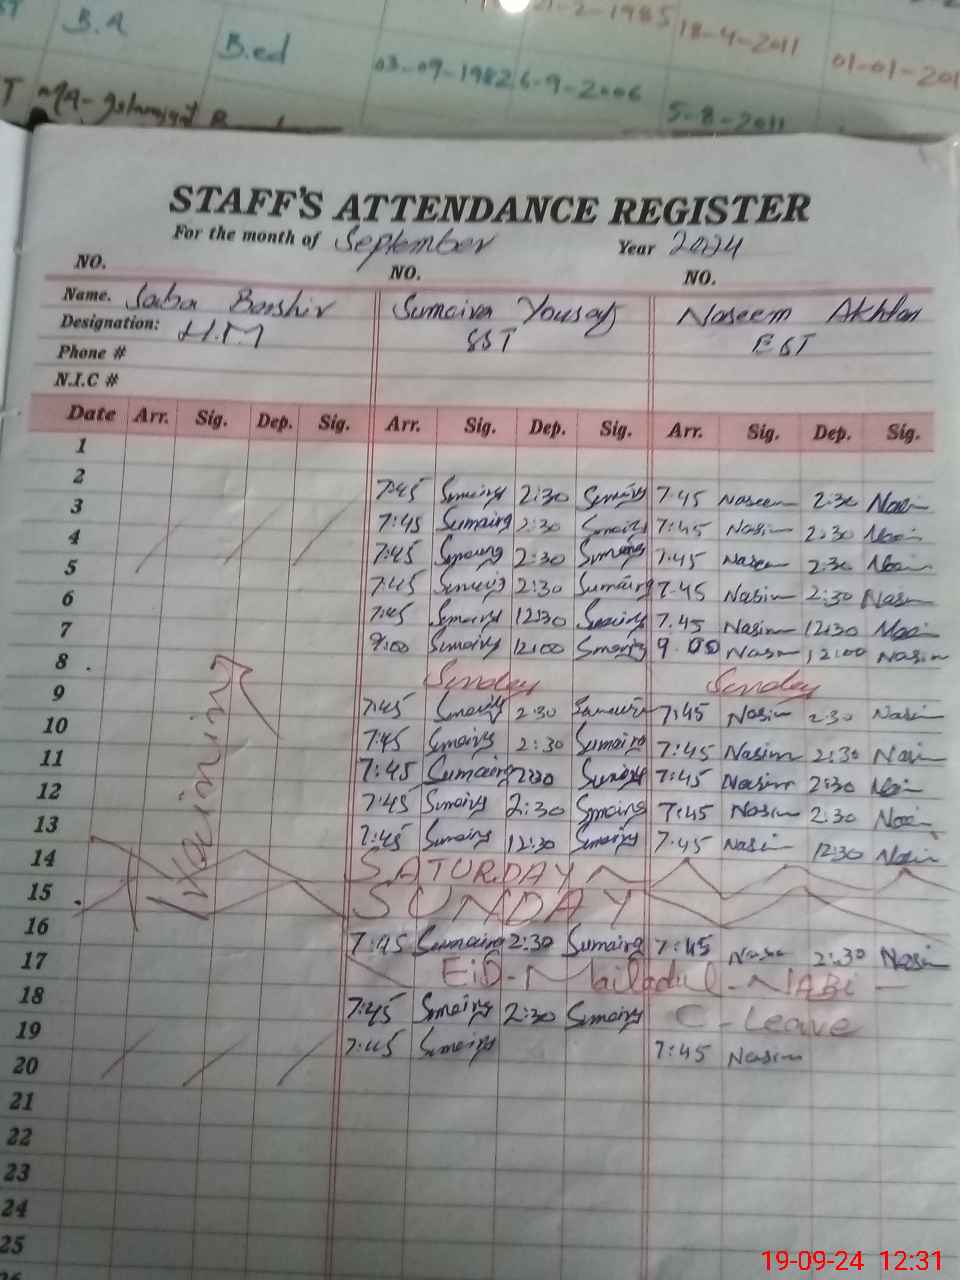 B.A B.ed 21-2-1985 18-4-2011
03-09-1982 6-9-2006 01-01-201
5-8-2011
STAFF'S ATTENDANCE REGISTER
For the month of September Year 2024
NO. NO. NO.
Name. Saba Bashir Sumaira Yousaf Naseem Akhtar
Designation: H.M SST EST
Phone #
N.I.C #
Date Arr. Sig. Dep. Sig. Arr. Sig. Dep. Sig. Arr. Sig. Dep. Sig.
1
2 7:45 Sumaira 2:30 Sumaira 7:45 Naseem 2:30 Nasim
3 7:45 Sumaira 2:30 Sumaira 7:45 Nasim 2:30 Nasim
4 7:45 Sumaira 2:30 Sumaira 7:45 Naseem 2:30 Nasim
5 7:45 Sumaira 2:30 Sumaira 7:45 Nasim 2:30 Nasim
6 7:45 Sumaira 12:30 Sumaira 7:45 Nasim 12:30 Nasim
7 9:00 Sumaira 12:00 Sumaira 9:00 Nasim 12:00 Nasim
8 Sunday Sunday
9 7:45 Sumaira 2:30 Sumaira 7:45 Nasim 2:30 Nasim
10 7:45 Sumaira 2:30 Sumaira 7:45 Nasim 2:30 Nasim
11 7:45 Sumaira 2:30 Sumaira 7:45 Nasim 2:30 Nasim
12 7:45 Sumaira 2:30 Sumaira 7:45 Nasim 2:30 Nasim
13 7:45 Sumaira 12:30 Sumaira 7:45 Nasim 12:30 Nasim
14 SATURDAY
15 SUNDAY
16 7:45 Sumaira 2:30 Sumaira 7:45 Nasim 2:30 Nasim
17 EiD-Mailadul-NABi
18 7:45 Sumaira 2:30 Sumaira C-Leave
19 7:45 Sumaira 7:45 Nasim
20
21
22
23
24
25
26
19-09-24 12:31